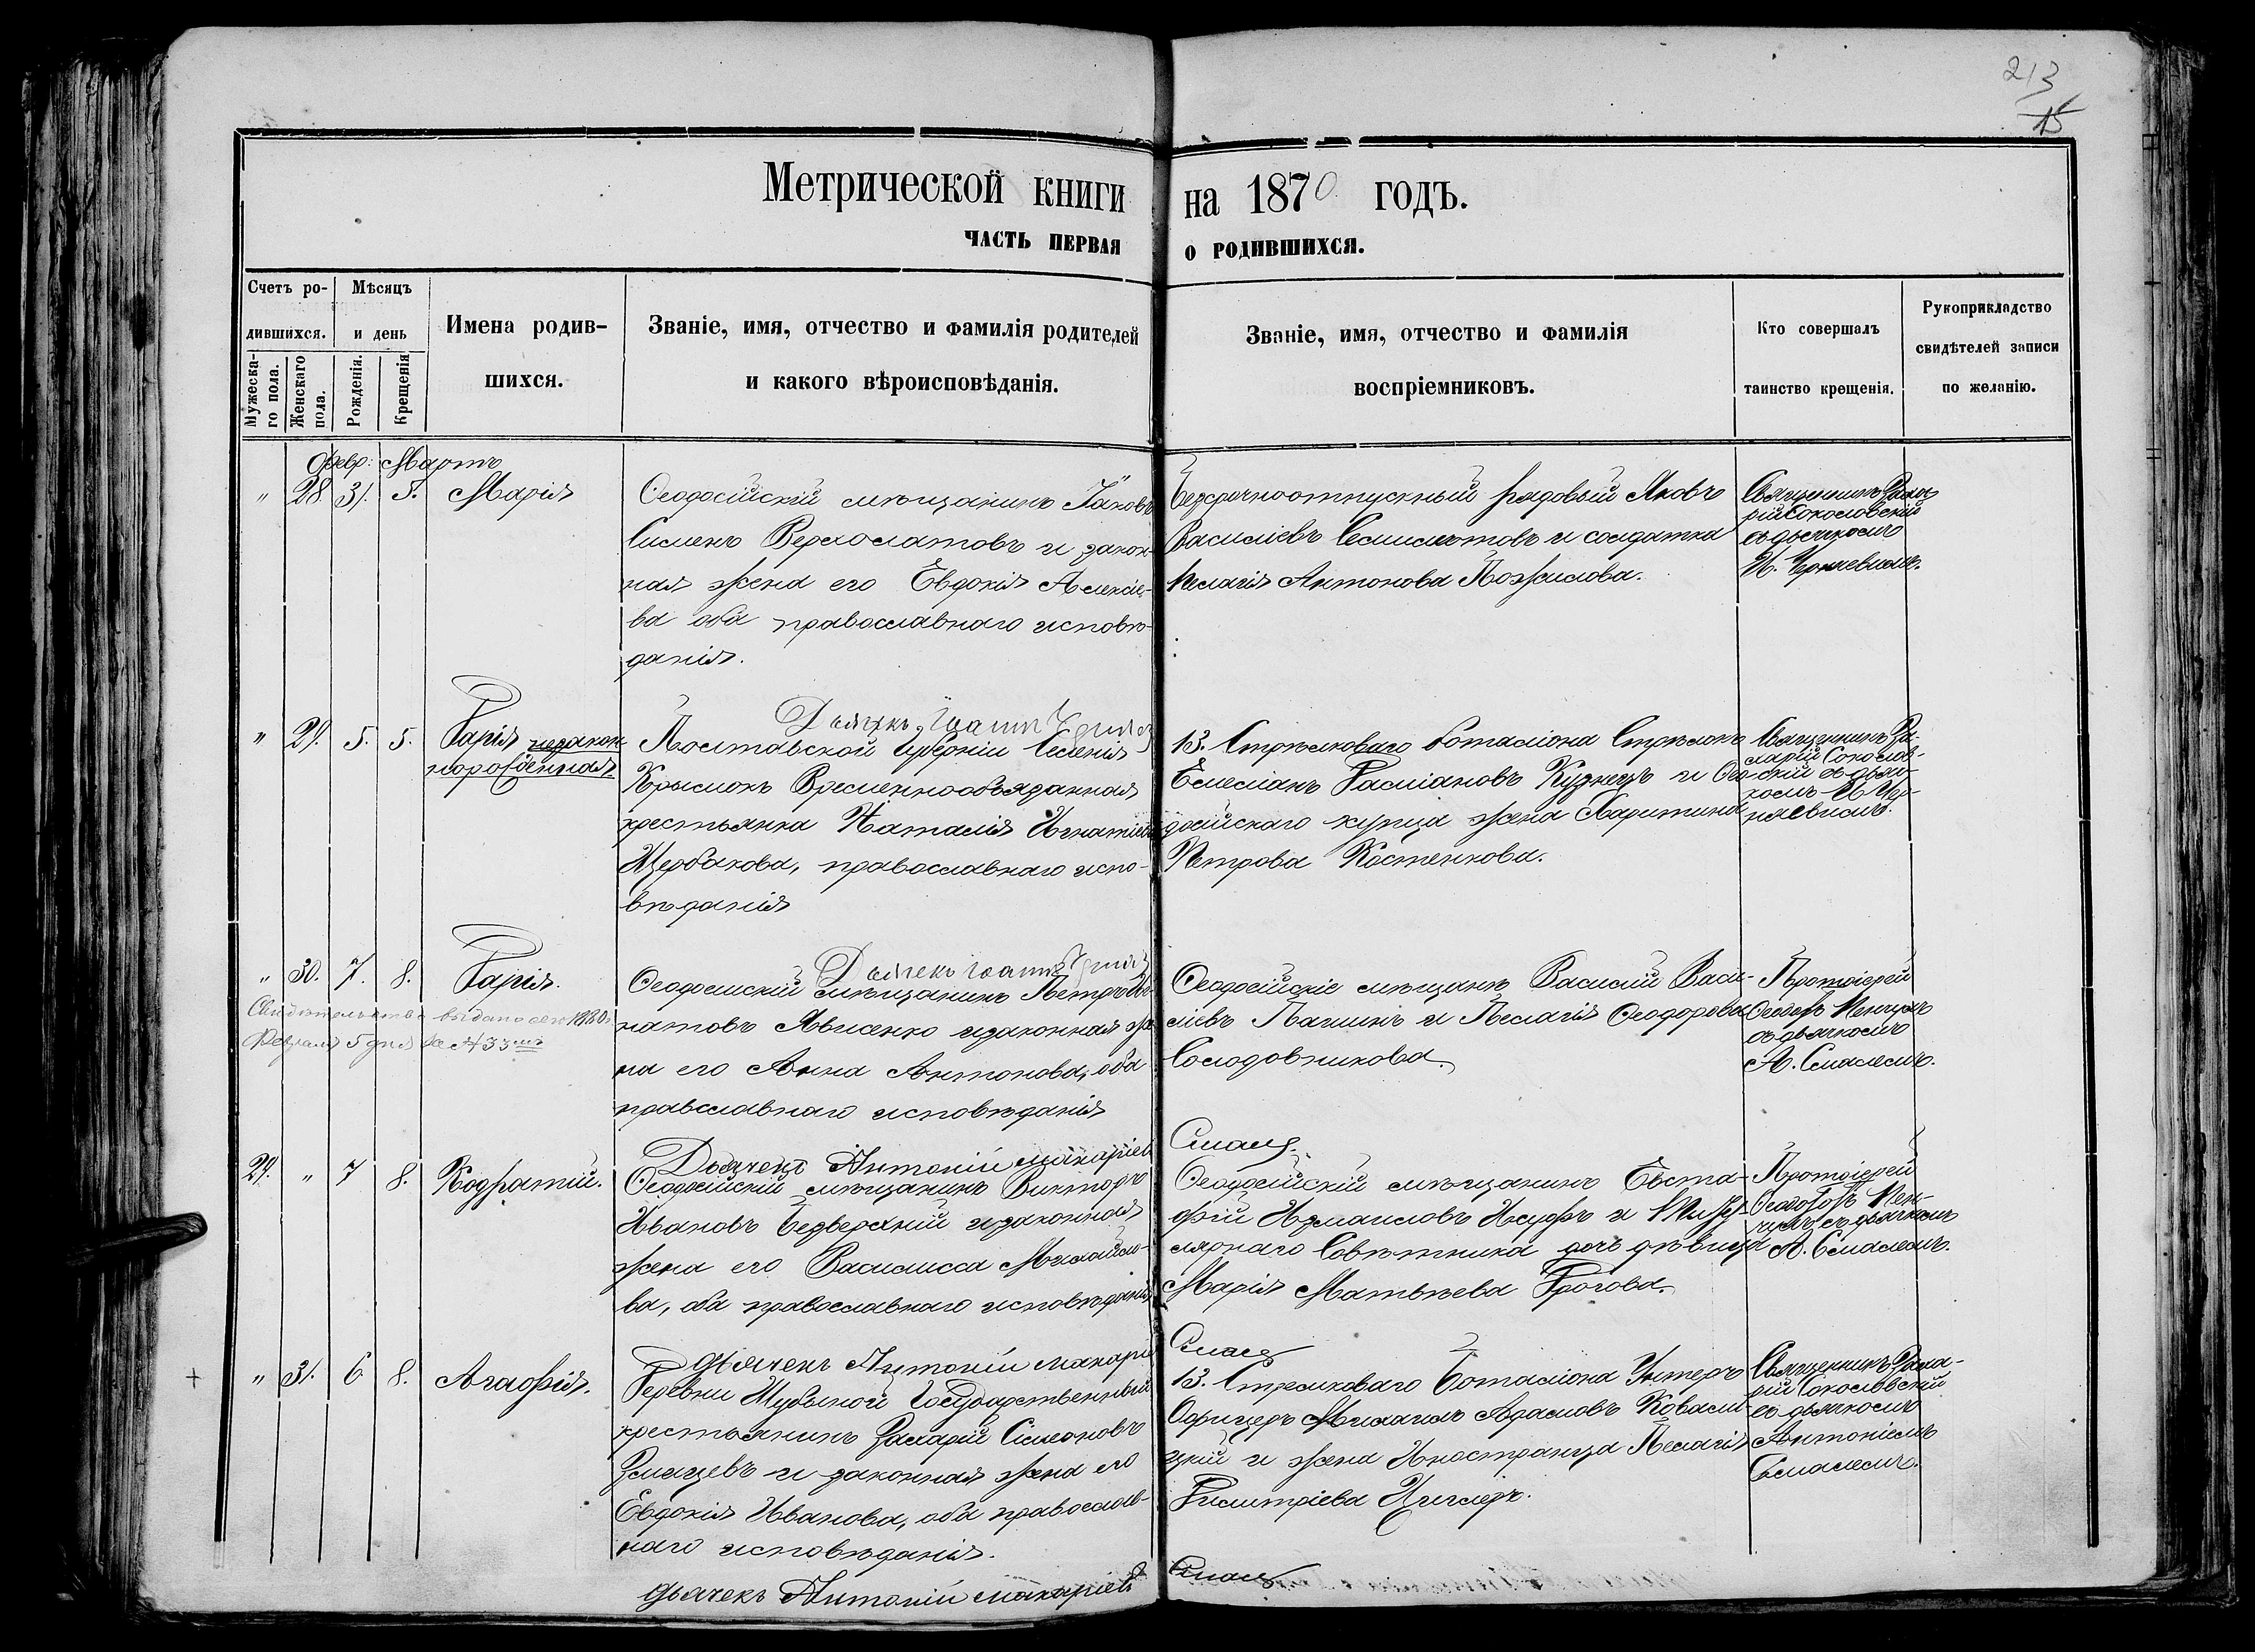 213
15
Метрической книги на 1870 годъ.
ЧАСТЬ ПЕРВАЯ О РОДИВШИХСЯ.
Счетъ ро-
дившихся.
Мужеска-
го пола.
Женскаго
пола.
Мѣсяцъ
и день
Рожденія.
Крещенія
Имена родив-
шихся.
Званіе, имя, отчество и фамилія родителей
и какого вѣроисповѣданія.
Званіе, имя, отчество и фамилія
воспріемниковъ.
Кто совершалъ
таинство крещенія.
Рукоприкладство
свидѣтелей записи
по желанію.
Февр: Мартъ
" 28 31. 5. Марія
Ѳеодосійскій мѣщанинъ Іаковъ
и закон-
ная жена его Евдокія Алексіе-
ва оба православнаго исповѣ-
данія.
Безсрочноотпускный рядовый Яковъ
Василіевъ и солдатка
Пелагія Антонова
Священникъ Заха-
рій Соколовскій
съ дьячкомъ
И.
" 29. 5. 5. Дарія незакон-
норожденная
Дьячекъ Іоаннъ
Полтавской губерніи
Временнообязанная
крестьянка Наталія Игнатіева
Щербакова, православнаго испо-
вѣданія
13. Стрѣлковаго баталіона Стрѣлокъ
Емеліанъ Даміановъ Кузнецъ и Ѳео-
досійскаго купца жена Харитина
Петрова Костенкова.
Священникъ За-
харій Соколов-
скій съ дьяч-
комъ И. Чер-
нявскимъ.
" 30. 7. 8. Дарія.
Свидѣтельство выдано 1880
Февраля 5 дня за № 33мъ
Дьячекъ Іоаннъ
Ѳеодосійскій мѣщанинъ Петръ Иг-
натовъ Явисенко и законная же-
на его Анна Антонова, оба
православнаго исповѣданія
Ѳеодосійскіе мѣщане Василій Васи-
ліевъ Пашинъ и Пелагія Ѳеодорова
Солодовникова.
Протоіерей
съ дьячкомъ
А.
29. " 7 8. Кодратій.
Дьячекъ Антоній Макаріевъ
Ѳеодосійскій мѣщанинъ Викторъ
Ивановъ Безверхній и законная
жена его Василисса Михайло-
ва, оба православнаго исповѣданія
Ѳеодосійскій мѣщанинъ Евста-
фій Измаиловъ и Титу-
лярнаго Совѣтника дочь дѣвица
Марія Матвѣева
Протоіерей
съ дьячкомъ
А.
" 31. 6 8. Агафія.
Дьячекъ Антоній Макаріевъ
Деревни Шубыной Государственный
крестьянинъ Захарій Симеоновъ
и законная жена его
Евдокія Иванова, оба православ-
наго исповѣданія.
13. Стрелковаго Баталіона Унтеръ
Офицеръ Михаилъ Адамовъ Ковалиц-
цкій и жена Иностранца Пелагія
Димитріева Циглеръ.
Священникъ Заха-
рій Соколовскій
съ дьячкомъ
Антоніемъ
дьячекъ Антоній Макаріевъ